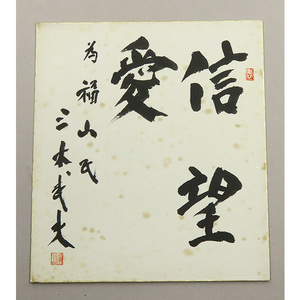 信望
愛
為福山氏
三木武夫